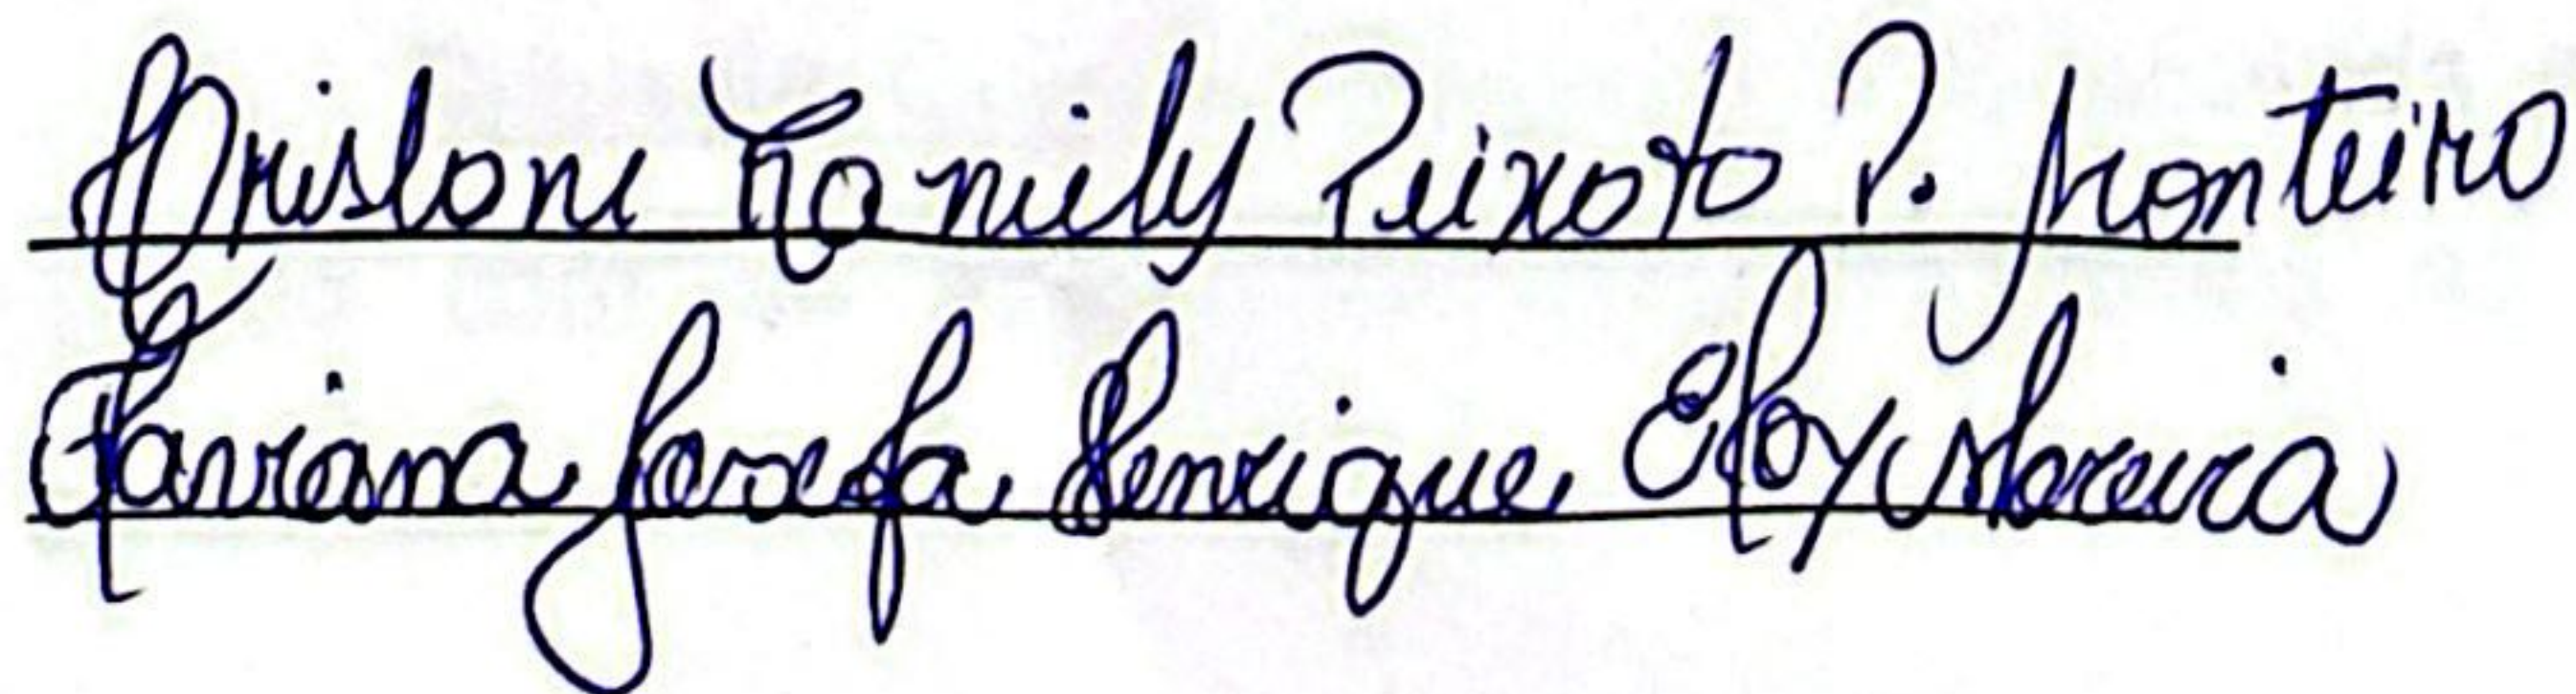 Krislane Kamily Peixoto P. Monteiro
Faviana Josefa Henrique Eloy Moreira